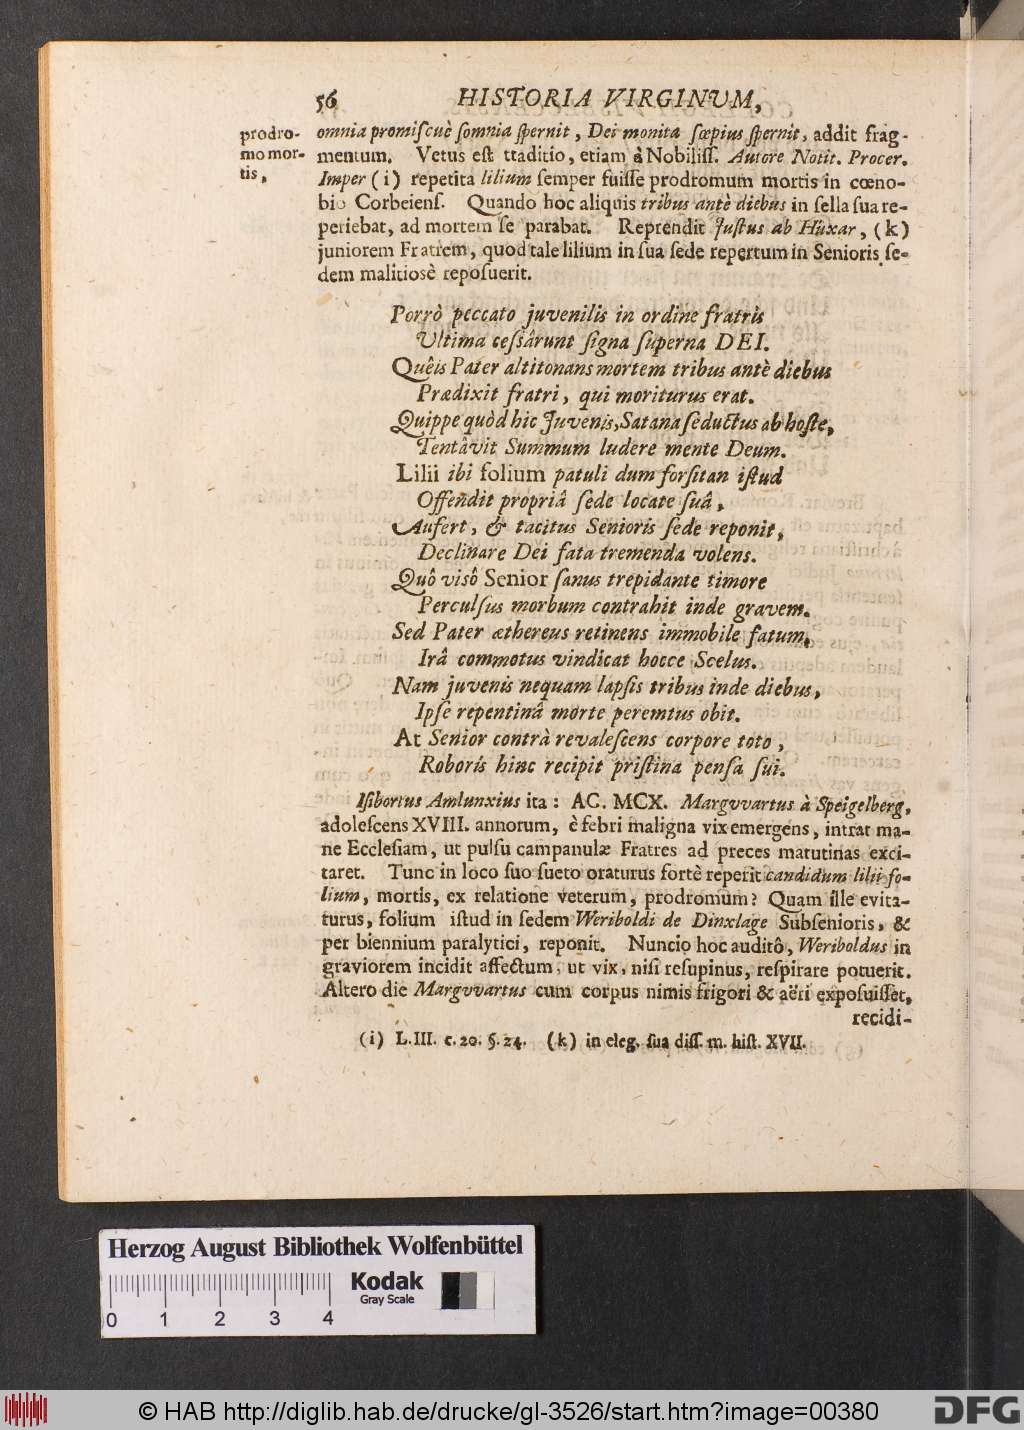 56 HISTORIA VIRGINUM,
prodro-
mo mor-
tis,
omnia promiſcuè ſomnia ſpernit, Dei monita ſœpius ſpernit, addit frag-
mentum. Vetus eſt ttaditio, etiam à Nobiliſſ. Autore Notit. Procer.
Imper (i) repetita lilium ſemper fuiſſe prodromum mortis in cœno-
bio Corbeienſ. Quando hoc aliquis tribus antè diebus in ſella ſua re-
periebat, ad mortem ſe parabat. Reprendit Juſtus ab Huxar, (k)
juniorem Fratrem, quod tale lilium in ſua ſede repertum in Senioris ſe-
dem malitiosè repoſuerit.
Porrò peccato juvenilis in ordine fratris
Ultima ceſſârunt ſigna ſuperna DEI.
Quêis Pater altitonans mortem tribus antè diebus
Prædixit fratri, qui moriturus erat.
Quippe quòd hic Juvenis, Satana ſeductus ab hoſte,
Tentâvit Summum ludere mente Deum.
Lilii ibi folium patuli dum forſitan iſtud
Offendit propriâ ſede locate ſuâ,
Aufert, & tacitus Senioris ſede reponit,
Declinare Dei fata tremenda volens.
Quô visô Senior ſanus trepidante timore
Perculſus morbum contrahit inde gravem.
Sed Pater æthereus retinens immobile fatum,
Irâ commotus vindicat hocce Scelus.
Nam juvenis nequam lapſis tribus inde diebus,
Ipſe repentinâ morte peremtus obit.
At Senior contrà revaleſcens corpore toto,
Roboris hinc recipit priſtina penſa ſui.
Iſibortus Amlunxius ita: AC. MCX. Margvvartus à Speigelberg,
adoleſcens XVIII. annorum, è febri maligna vix emergens, intrat ma-
ne Eccleſiam, ut pulſu campanulæ Fratres ad preces matutinas exci-
taret. Tunc in loco ſuo ſueto oraturus fortè reperit candidum lilii fo-
lium, mortis, ex relatione veterum, prodromum? Quam ille evita-
turus, folium iſtud in ſedem Weriboldi de Dinxlage Subſenioris, &
per biennium paralytici, reponit. Nuncio hoc auditô, Weriboldus in
graviorem incidit affectum, ut vix, niſi reſupinus, reſpirare potuerit.
Altero die Margvvartus cum corpus nimis frigori & aëri expoſuiſſet,
recidi-
(i) L. III. c. 20. §. 24. (k) in eleg. ſua diſſ. m. hiſt. XVII.
Herzog August Bibliothek Wolfenbüttel
Kodak
Gray Scale
0 1 2 3 4
© HAB http://diglib.hab.de/drucke/gl-3526/start.htm?image=00380
DFG